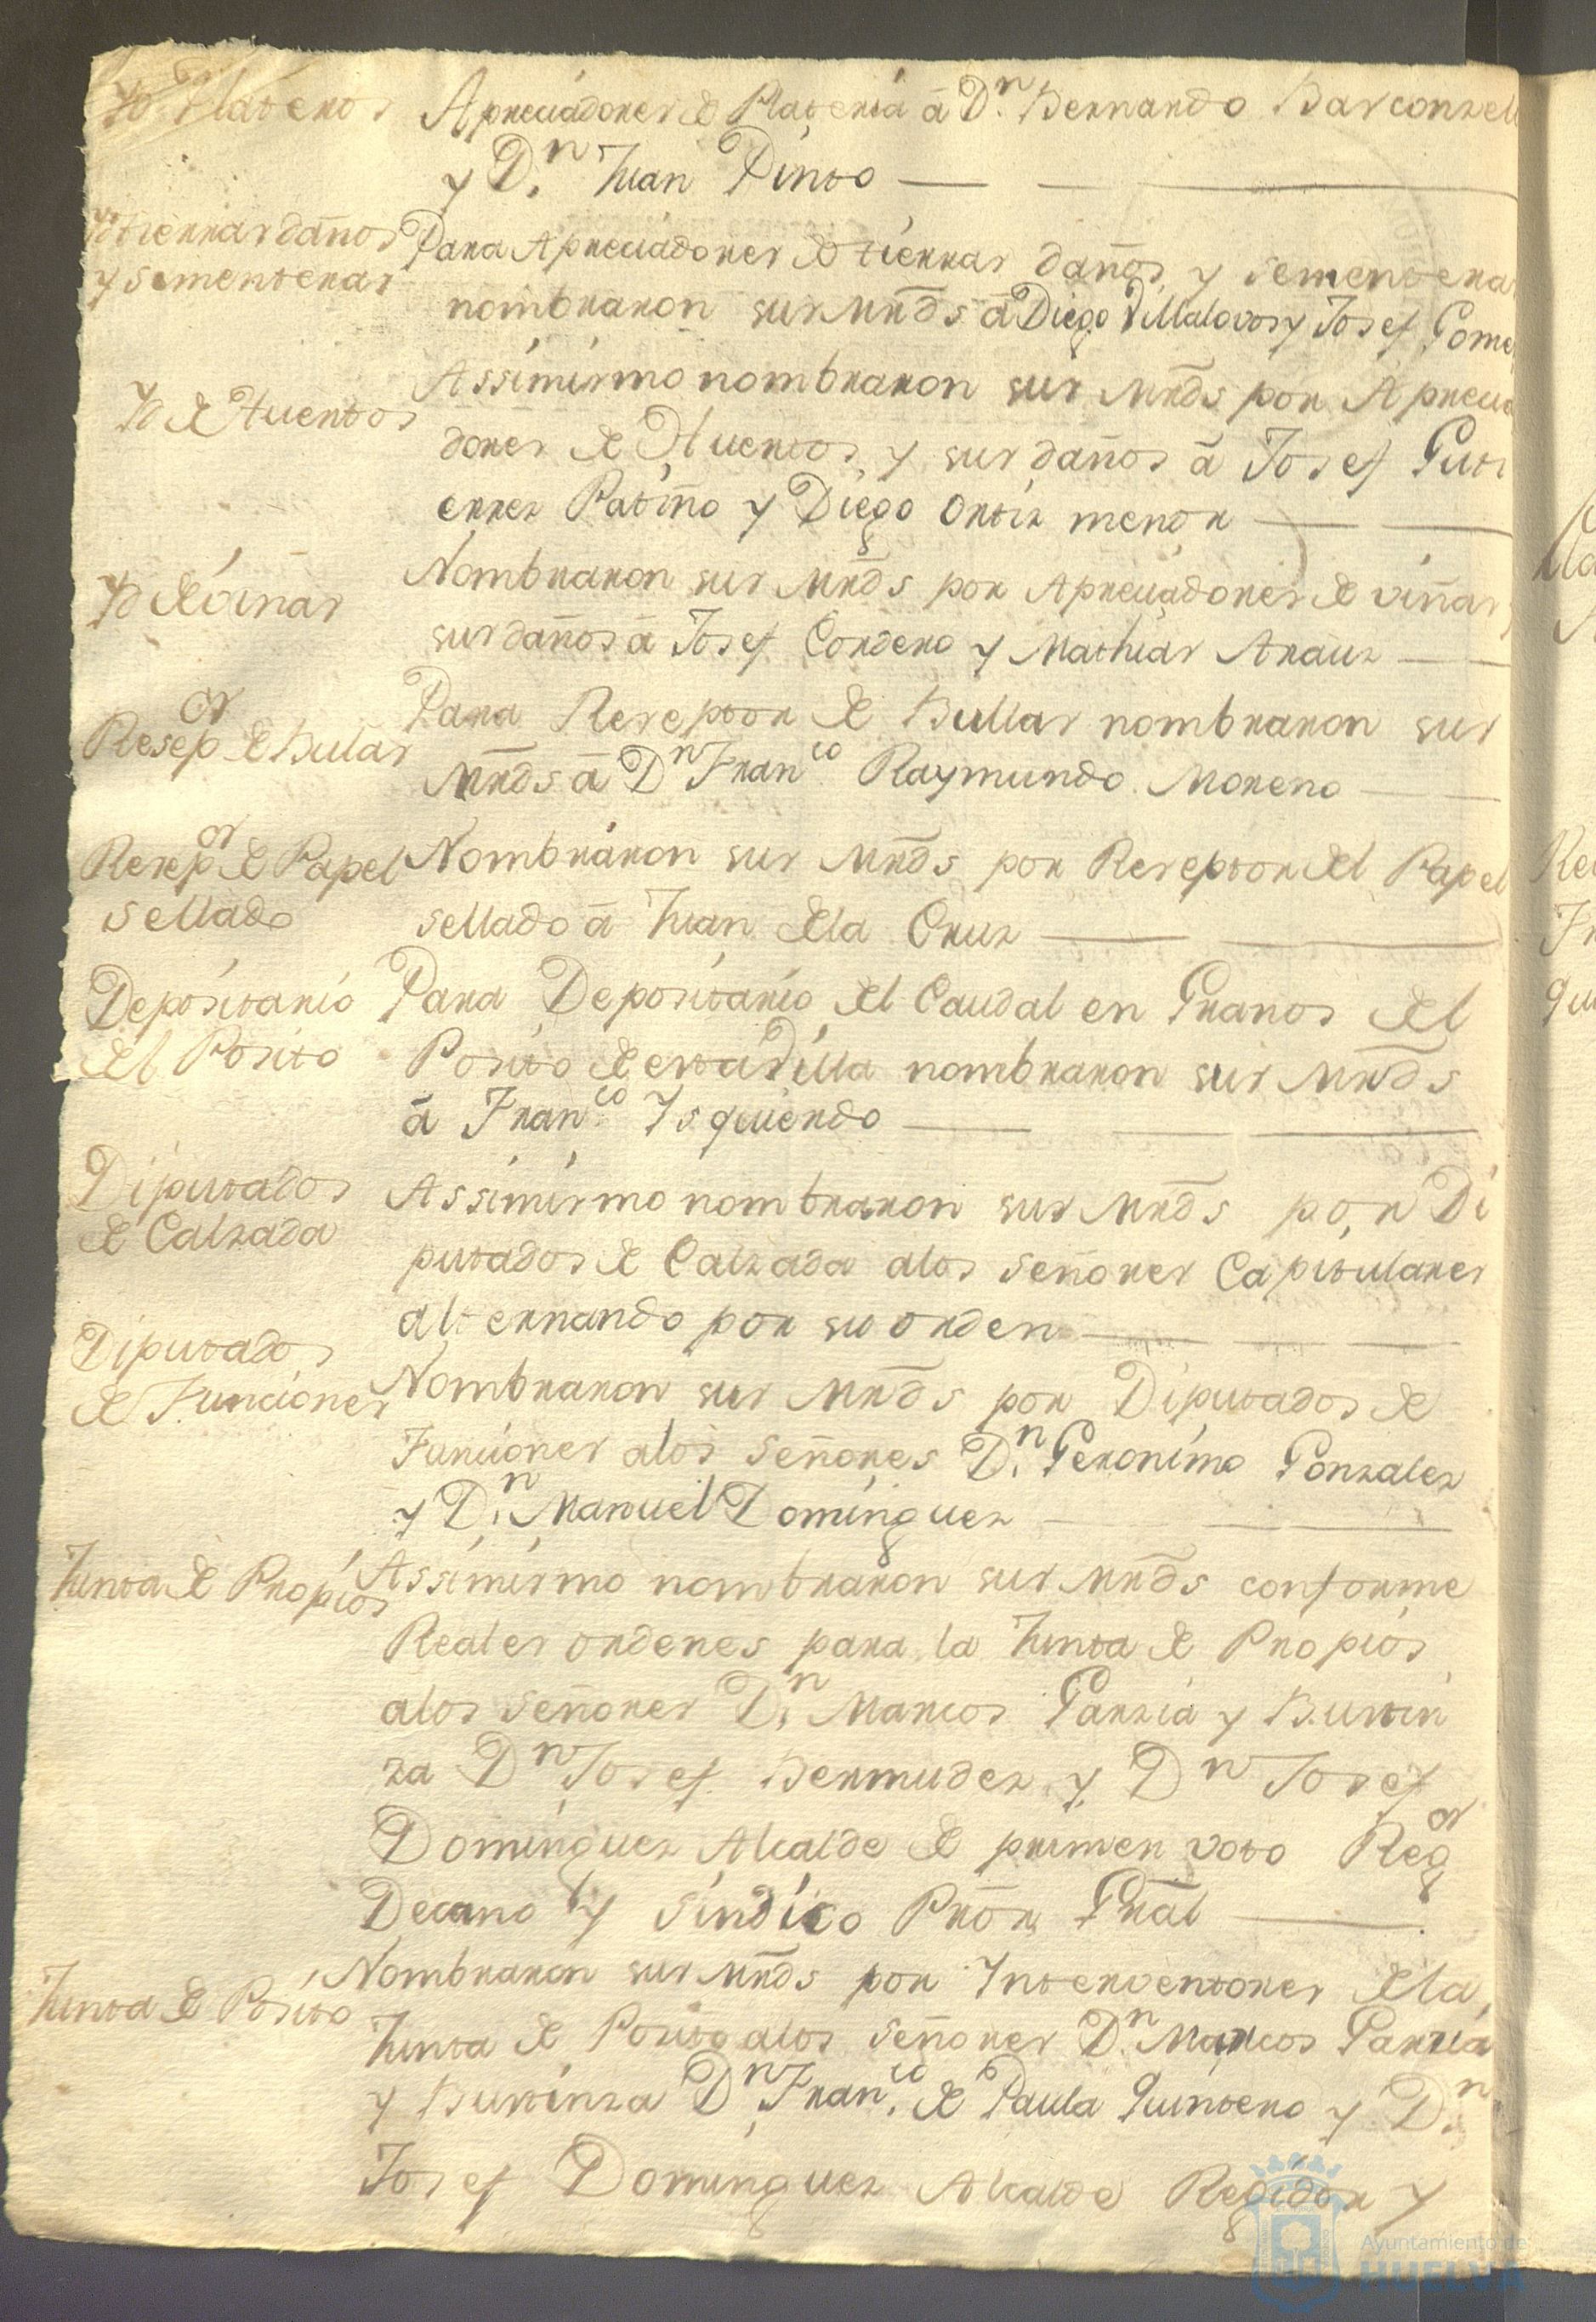 Yd. Plateros
Apreciadores de Plateria â Dn. Bernardo Barconzel
y Dn. Juan Pinto
Yd tierras daños
y sementeras
Para Apreciadores de tierras daños, y sementeras
nombraron sus Mrds â Diego Villalovos y Josef Gome
Yd de Huertos
Assimismo nombraron sus Mrds por Aprecia
dores de Huertos, y sus daños â Josef Guti
errez Patiño y Diego Ortiz menor
Yd de viñas
Nombraron sus Mrds por Apreciadores de viñas y
sus daños â Josef Cordero y Mathias Arauz
Resepor de Bulas
Para Reseptor de Bullas nombraron sus
Mrds â Dn Franco Raymundo Moreno
Resepor de Papel
sellado
Nombraron sus Mrds por Reseptor del Papel
sellado â Juan de la Cruz
Depositario
del Posito
Para Depositario del Caudal en Granos del
Posito de esta Villa nombraron sus Mrds
â Franco Ysquierdo
Diputados
de Calzada
Assimismo nombraron sus Mrds por Di
putados de Calzada alos señores Capitulares
alternando por su orden
Diputados
de Funciones
Nombraron sus Mrds por Diputados de
Funciones alos señores Dn. Geronimo Gonzalez
y Dn. Manuel Dominguez
Junta de Propios
Assimismo nombraron sus Mrds conforme
Reales ordenes para la Junta de Propios
alos señores Dn. Marcos Garzia y Bustin
za Dn Josef Bermudez y Dn Josef
Dominguez Alcalde de primer voto Regor
Decano y sindico Prōr Grāl
Junta de Posito
Nombraron sus Mrds por Interventores de la
Junta de Posito alos señores Dn. Marcos Garzia
y Bustinza Dn Franco de Paula Quintero y Dn.
Josef Dominguez Alcalde Regidor y
Ayuntamiento de
HUELVA